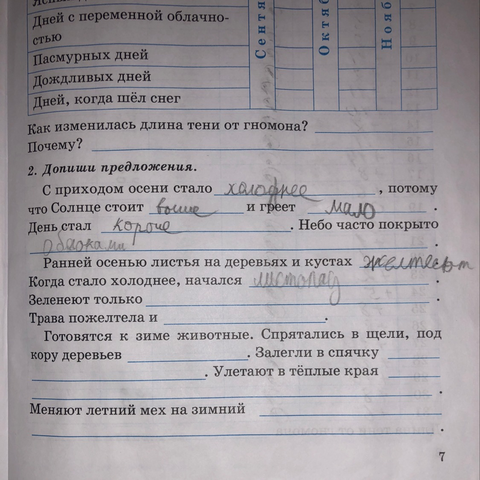 Дней с переменной облачно-
стью
Пасмурных дней
Дождливых дней
Дней, когда шёл снег
Как изменилась длина тени от гномона?
Почему?
2. Допиши предложения.
С приходом осени стало холоднее, потому
что Солнце стоит выше и греет мало.
День стал короче. Небо часто покрыто
облоками.
Ранней осенью листья на деревьях и кустах желтеют.
Когда стало холоднее, начался листопад.
Зеленеют только .
Трава пожелтела и .
Готовятся к зиме животные. Спрятались в щели, под
кору деревьев . Залегли в спячку
. Улетают в тёплые края
.
Меняют летний мех на зимний
.
7